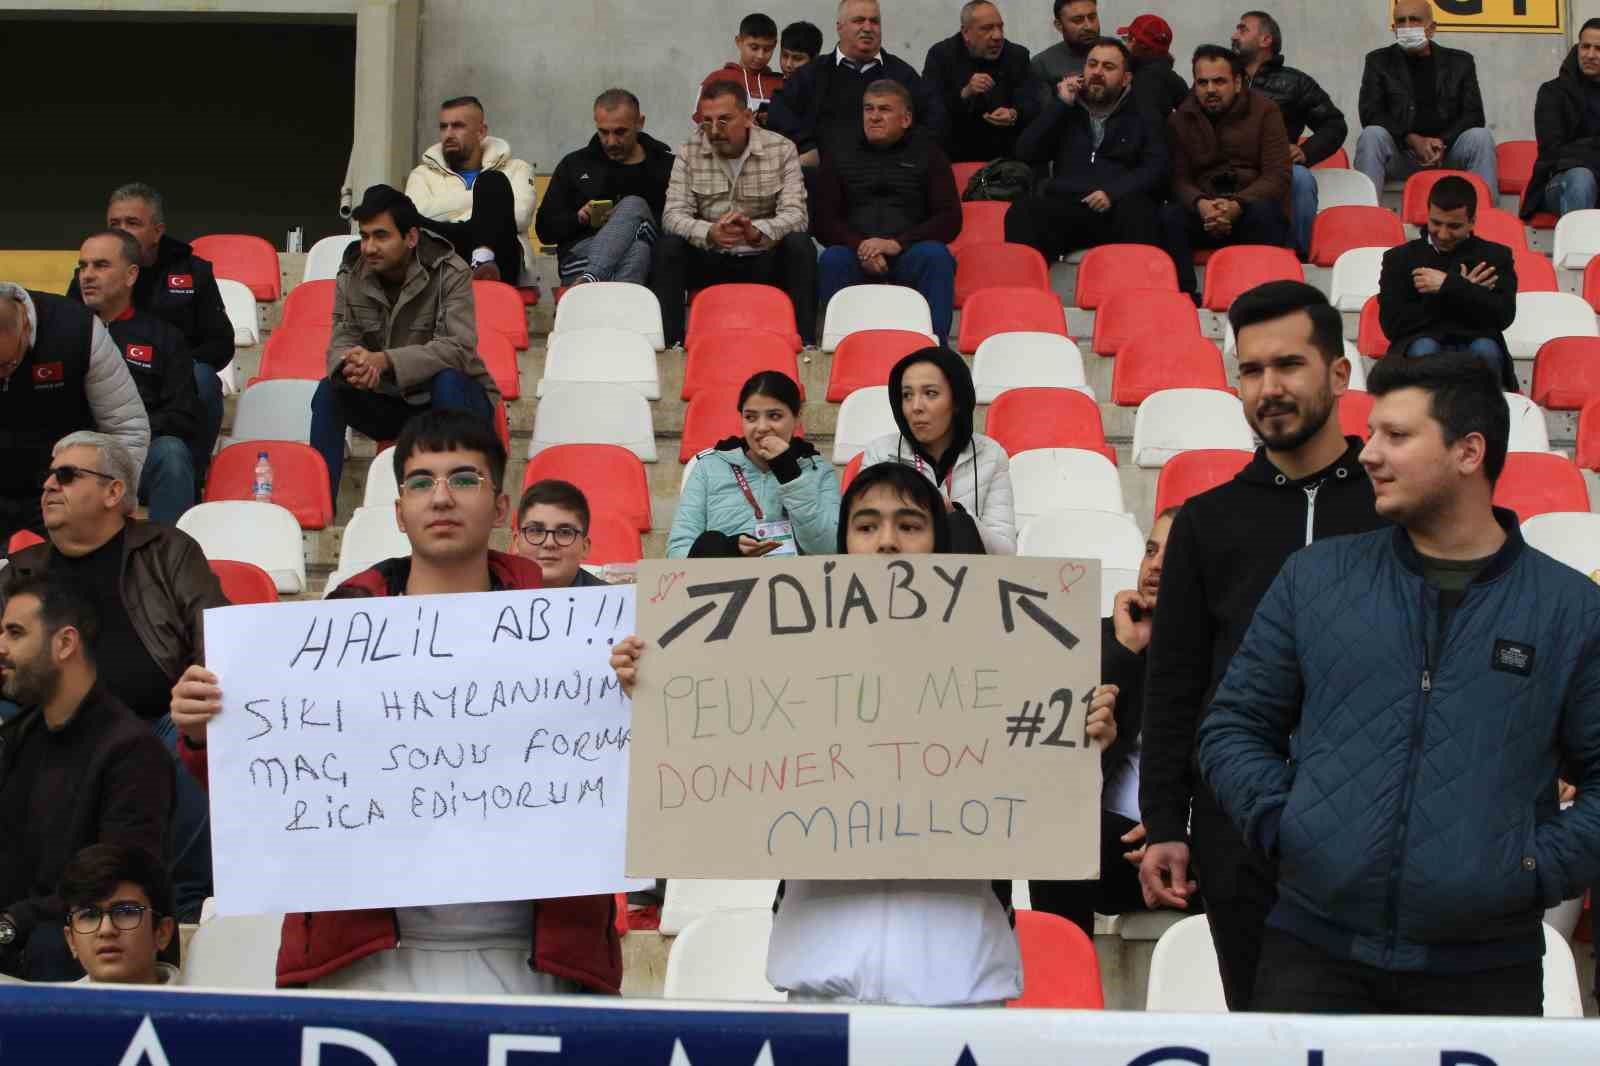 HALİL ABİ!!
SIKI HAYRANINIM
MAÇ SONU FORMA
RİCA EDİYORUM
DİABY
PEUX-TU ME
#21
DONNER TON
MAILLOT